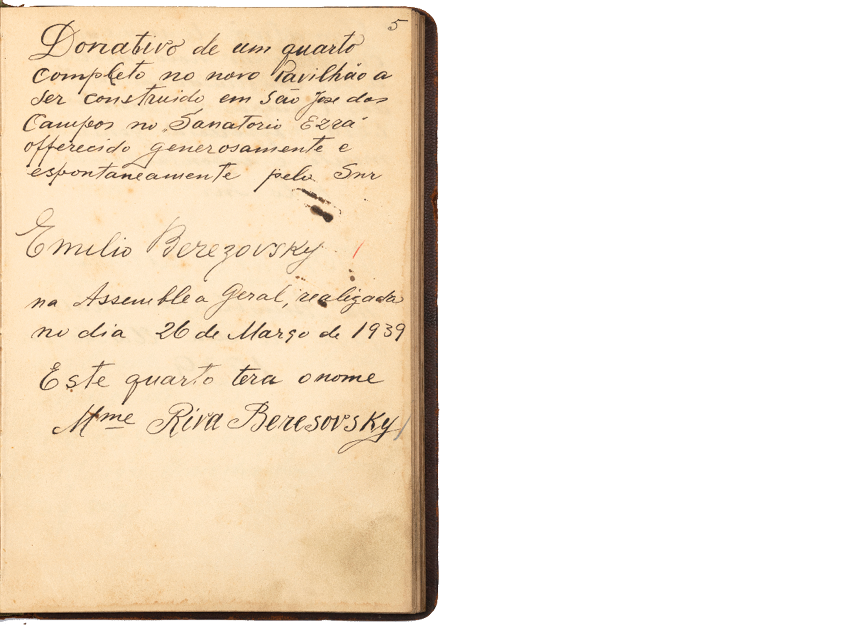 5
Donativo de um quarto
completo no novo Pavilhão a
ser construido em São Jose dos
Campos no Sanatorio Ezra
offerecido generosamente e
espontaneamente pelo Snr
Emilio Berezovsky
na Assemblea Geral, realizada
no dia 26 de Março de 1939
Este quarto tera o nome
Mme Riva Beresovsky